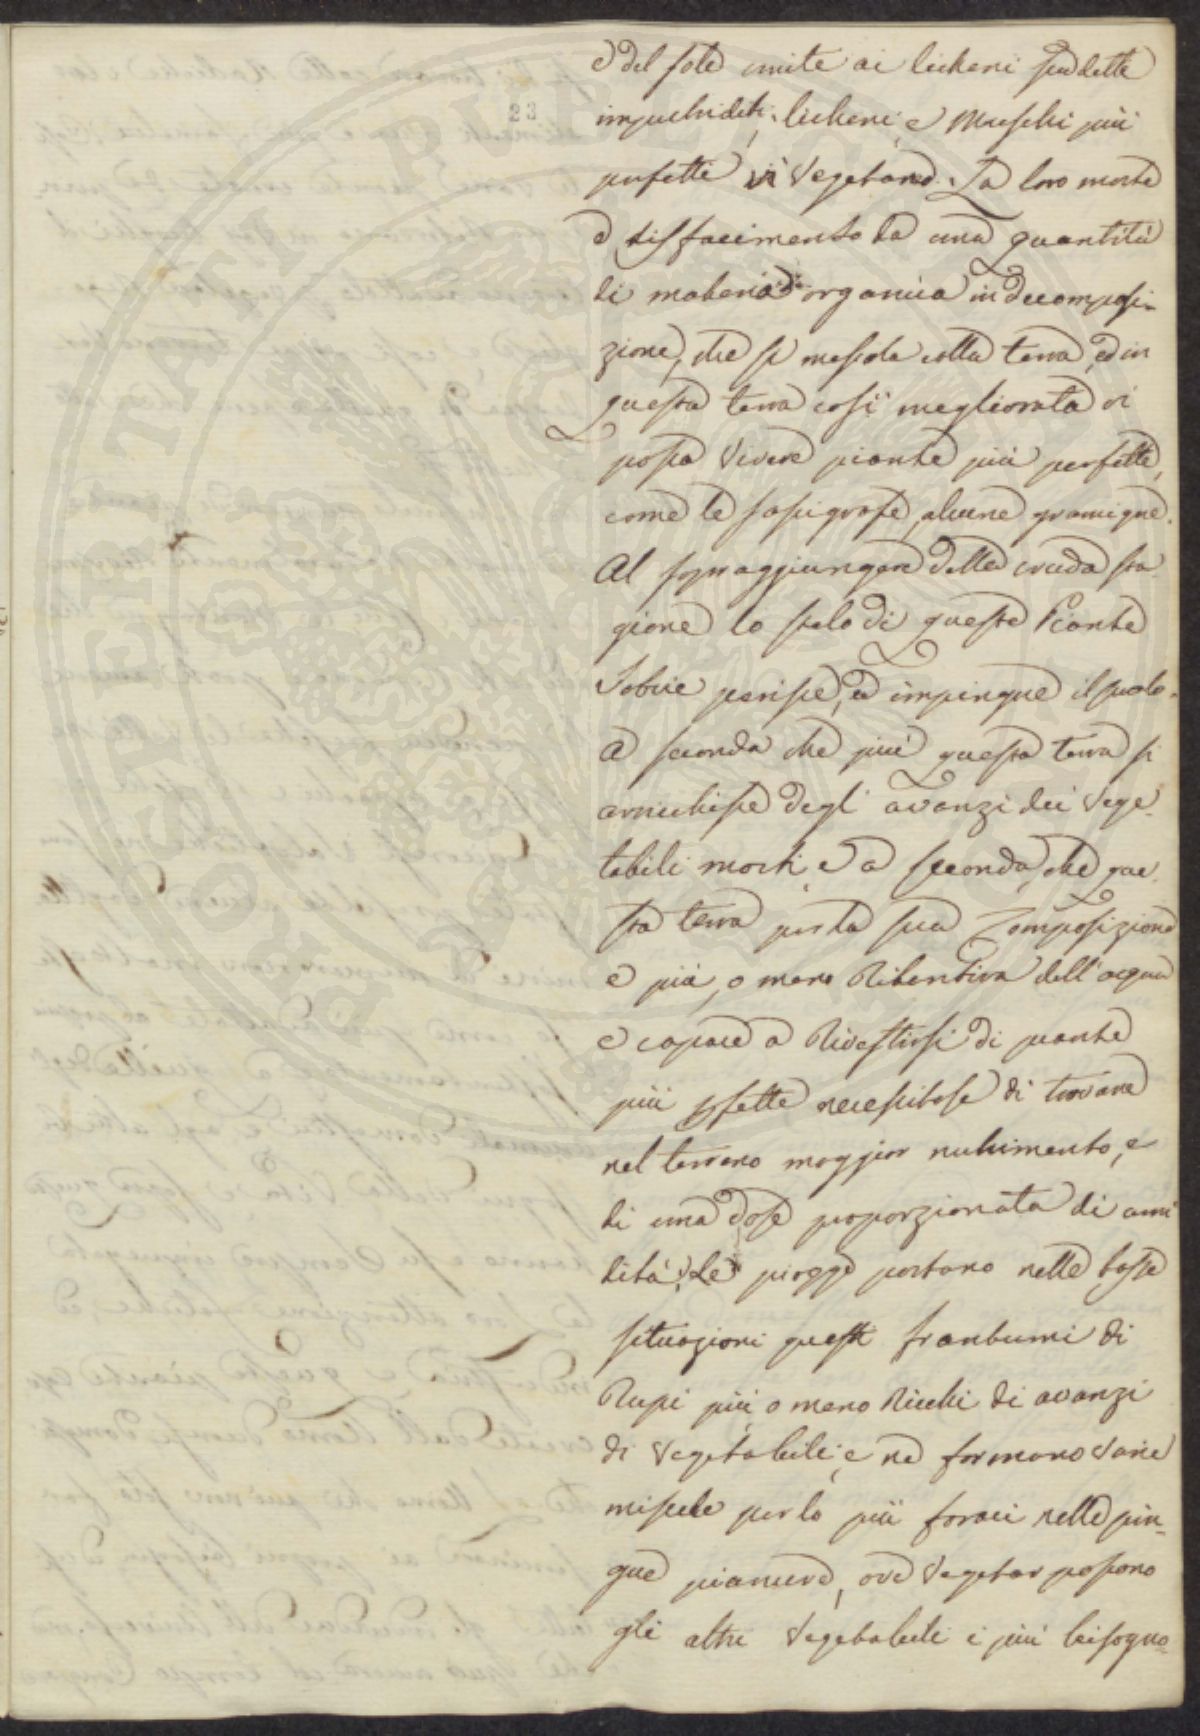 23
e del sole unite ai lickeni suddetti
imputriditi, lickeni, e Muschi più
perfetti vi vegetano. La loro morte
e disfacimento da una quantità
di materia organica in decomposi-
zione, che si mescola colla terra, ed in
questa terra così megliorata vi
possa vivere piante più perfette,
come le sassigrafe, alcune gramigne.
Al sopraggiungere della cruda sta-
gione lo stelo di queste Piante
Sobrie perisce, ed impingue il suolo.
A seconda che più questa terra si
arricchisce degl'avanzi dei vege-
tabili morti, e a seconda, che que-
sta terra per la sua Composizione
e più, o meno Ritentiva dell'acqua
e capace a Rivestirsi di piante
più pfette necessitose di trovare
nel terreno maggior nutrimento, e
di una dose proporzionata di umi
dità. Le piogge portano nelle basse
situazioni questi frantumi di
Rupi più, o meno Ricchi di avanzi
di vegetabili, e ne formano varie
miscele per lo più feraci nelle pin-
gue pianure, ove vegetar possono
gli altri vegetabili i più bisogno-